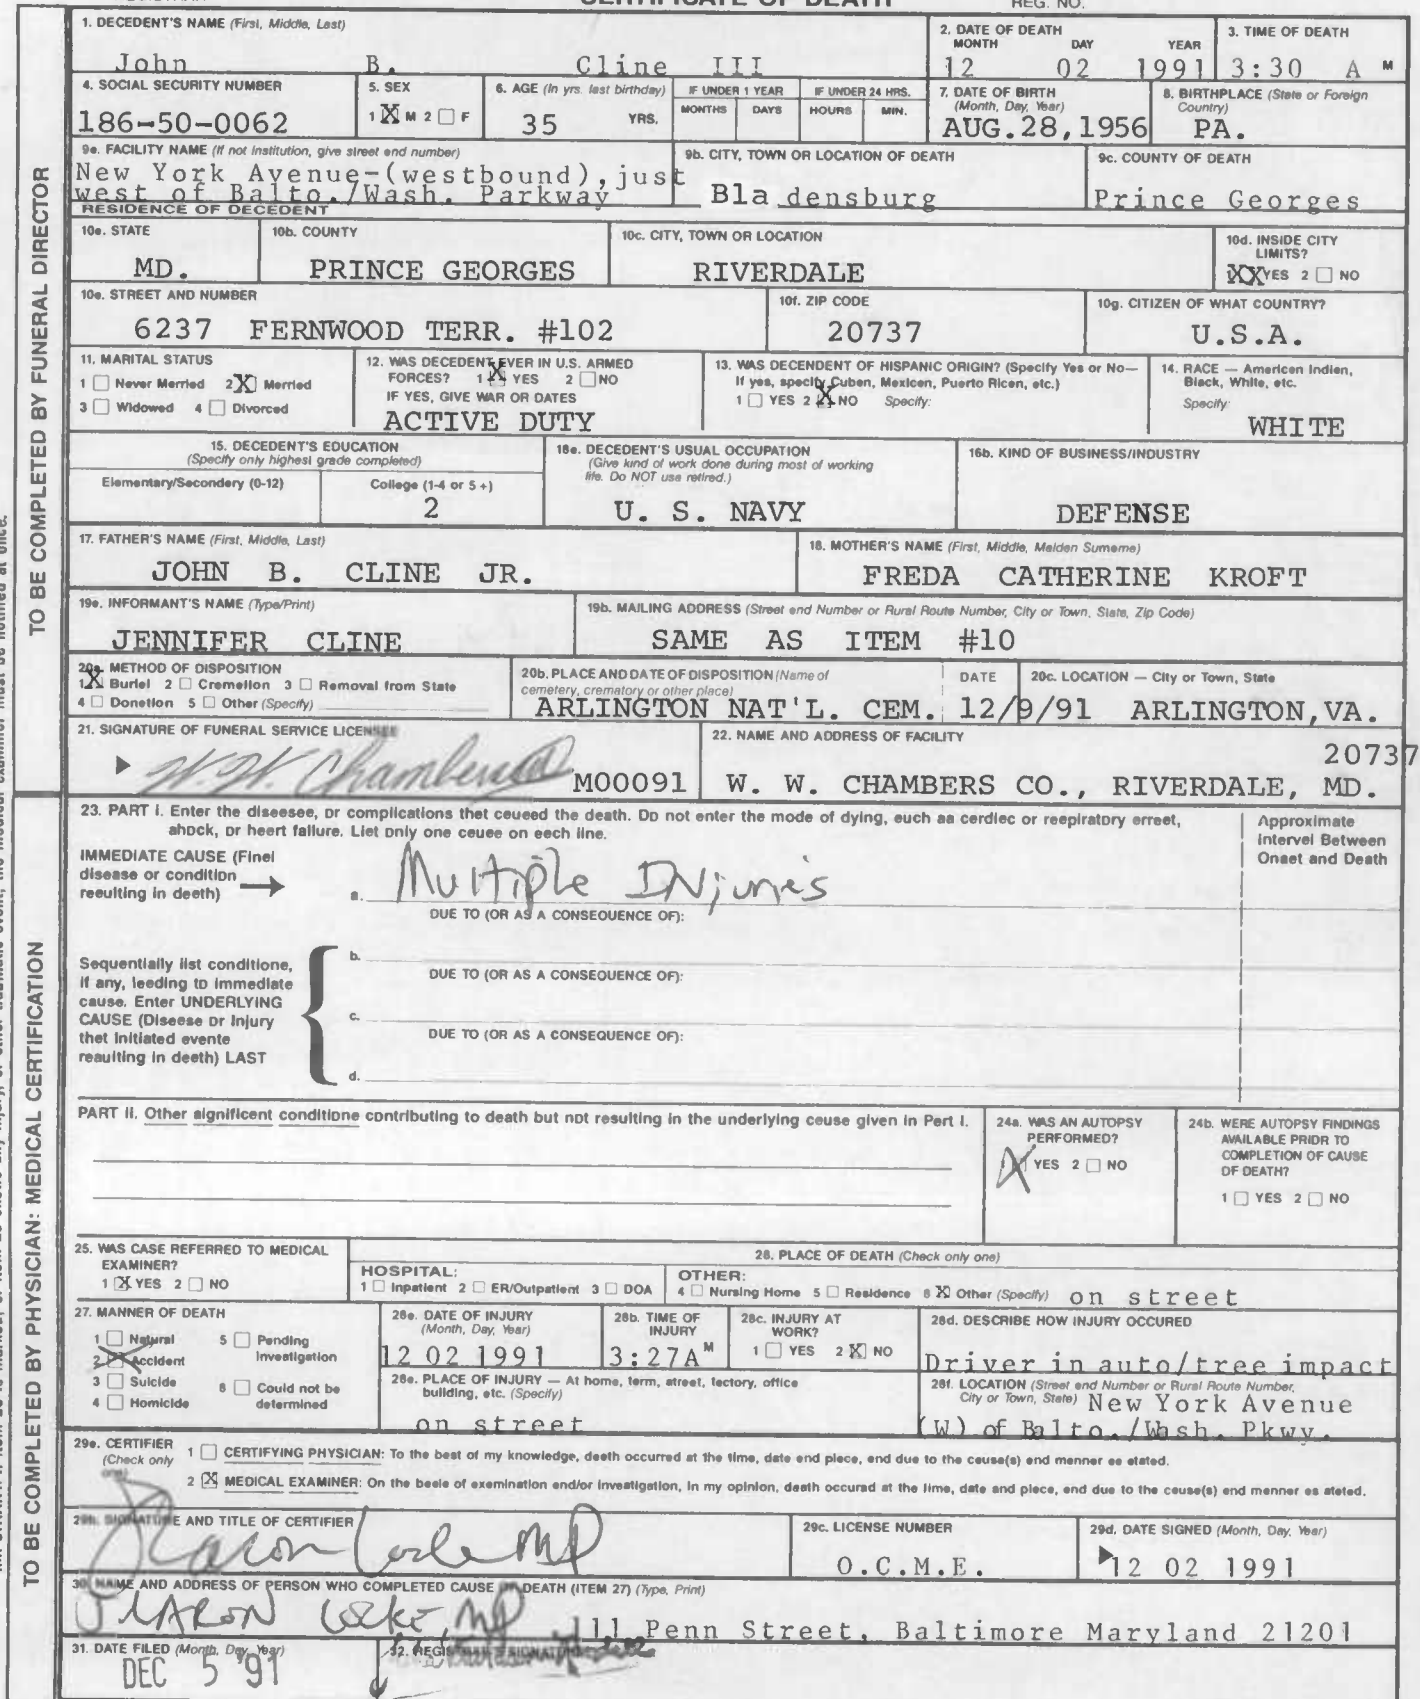 CERTIFICATE OF DEATH
REG. NO.
1. DECEDENT'S NAME (First, Middle, Last)
John B. Cline III
2. DATE OF DEATH
MONTH DAY YEAR
12 02 1991
3. TIME OF DEATH
3:30 A M
4. SOCIAL SECURITY NUMBER
186-50-0062
5. SEX
1 X M 2 F
6. AGE (In yrs. last birthday)
35 YRS.
IF UNDER 1 YEAR
MONTHS DAYS
IF UNDER 24 HRS.
HOURS MIN.
7. DATE OF BIRTH
(Month, Day, Year)
AUG.28,1956
8. BIRTHPLACE (State or Foreign
Country)
PA.
9a. FACILITY NAME (If not institution, give street and number)
New York Avenue-(westbound),just
west of Balto./Wash. Parkway
9b. CITY, TOWN OR LOCATION OF DEATH
Bladensburg
9c. COUNTY OF DEATH
Prince Georges
RESIDENCE OF DECEDENT
10a. STATE
MD.
10b. COUNTY
PRINCE GEORGES
10c. CITY, TOWN OR LOCATION
RIVERDALE
10d. INSIDE CITY
LIMITS?
1 XX YES 2 NO
10e. STREET AND NUMBER
6237 FERNWOOD TERR. #102
10f. ZIP CODE
20737
10g. CITIZEN OF WHAT COUNTRY?
U.S.A.
11. MARITAL STATUS
1 Never Married 2 X Married
3 Widowed 4 Divorced
12. WAS DECEDENT EVER IN U.S. ARMED
FORCES? 1 X YES 2 NO
IF YES, GIVE WAR OR DATES
ACTIVE DUTY
13. WAS DECENDENT OF HISPANIC ORIGIN? (Specify Yes or No—
If yes, specify Cuban, Mexican, Puerto Rican, etc.)
1 YES 2 X NO Specify:
14. RACE — American Indian,
Black, White, etc.
Specify:
WHITE
15. DECEDENT'S EDUCATION
(Specify only highest grade completed)
Elementary/Secondary (0-12)
College (1-4 or 5+)
2
16a. DECEDENT'S USUAL OCCUPATION
(Give kind of work done during most of working
life. Do NOT use retired.)
U. S. NAVY
16b. KIND OF BUSINESS/INDUSTRY
DEFENSE
17. FATHER'S NAME (First, Middle, Last)
JOHN B. CLINE JR.
18. MOTHER'S NAME (First, Middle, Maiden Surname)
FREDA CATHERINE KROFT
19a. INFORMANT'S NAME (Type/Print)
JENNIFER CLINE
19b. MAILING ADDRESS (Street and Number or Rural Route Number, City or Town, State, Zip Code)
SAME AS ITEM #10
20a. METHOD OF DISPOSITION
1 X Burial 2 Cremation 3 Removal from State
4 Donation 5 Other (Specify)
20b. PLACE AND DATE OF DISPOSITION (Name of
cemetery, crematory or other place)
ARLINGTON NAT'L. CEM.
DATE
12/9/91
20c. LOCATION — City or Town, State
ARLINGTON,VA.
21. SIGNATURE OF FUNERAL SERVICE LICENSEE
W.W. Chambers
M00091
22. NAME AND ADDRESS OF FACILITY
20737
W. W. CHAMBERS CO., RIVERDALE, MD.
23. PART I. Enter the diseases, or complications that caused the death. Do not enter the mode of dying, such as cardiac or respiratory arrest,
shock, or heart failure. List only one cause on each line.
Approximate
Interval Between
Onset and Death
IMMEDIATE CAUSE (Final
disease or condition
resulting in death)
a. Multiple Injuries
DUE TO (OR AS A CONSEQUENCE OF):
Sequentially list conditions,
if any, leading to immediate
cause. Enter UNDERLYING
CAUSE (Disease or Injury
that initiated events
resulting in death) LAST
b.
DUE TO (OR AS A CONSEQUENCE OF):
c.
DUE TO (OR AS A CONSEQUENCE OF):
d.
PART II. Other significant conditions contributing to death but not resulting in the underlying cause given in Part I.
24a. WAS AN AUTOPSY
PERFORMED?
1 X YES 2 NO
24b. WERE AUTOPSY FINDINGS
AVAILABLE PRIOR TO
COMPLETION OF CAUSE
OF DEATH?
1 YES 2 NO
25. WAS CASE REFERRED TO MEDICAL
EXAMINER?
1 X YES 2 NO
26. PLACE OF DEATH (Check only one)
HOSPITAL:
1 Inpatient 2 ER/Outpatient 3 DOA
OTHER:
4 Nursing Home 5 Residence 6 X Other (Specify) on street
27. MANNER OF DEATH
1 Natural 5 Pending
Investigation
2 X Accident
3 Suicide 6 Could not be
determined
4 Homicide
28a. DATE OF INJURY
(Month, Day, Year)
12 02 1991
28b. TIME OF
INJURY
3:27A M
28c. INJURY AT
WORK?
1 YES 2 X NO
28d. DESCRIBE HOW INJURY OCCURED
Driver in auto/tree impact
28e. PLACE OF INJURY — At home, farm, street, factory, office
building, etc. (Specify)
on street
28f. LOCATION (Street and Number or Rural Route Number,
City or Town, State) New York Avenue
(W) of Balto./Wash. Pkwy.
29a. CERTIFIER
(Check only
one)
1 CERTIFYING PHYSICIAN: To the best of my knowledge, death occurred at the time, date and place, and due to the cause(s) and manner as stated.
2 X MEDICAL EXAMINER: On the basis of examination and/or investigation, in my opinion, death occured at the time, date and place, and due to the cause(s) and manner as stated.
29b. SIGNATURE AND TITLE OF CERTIFIER
J Laron Locke MD
29c. LICENSE NUMBER
O.C.M.E.
29d. DATE SIGNED (Month, Day, Year)
12 02 1991
30. NAME AND ADDRESS OF PERSON WHO COMPLETED CAUSE OF DEATH (ITEM 27) (Type, Print)
J LARON LOCKE, MD 111 Penn Street, Baltimore Maryland 21201
31. DATE FILED (Month, Day, Year)
DEC 5 '91
32. REGISTRAR'S SIGNATURE
TO BE COMPLETED BY FUNERAL DIRECTOR
TO BE COMPLETED BY PHYSICIAN: MEDICAL CERTIFICATION